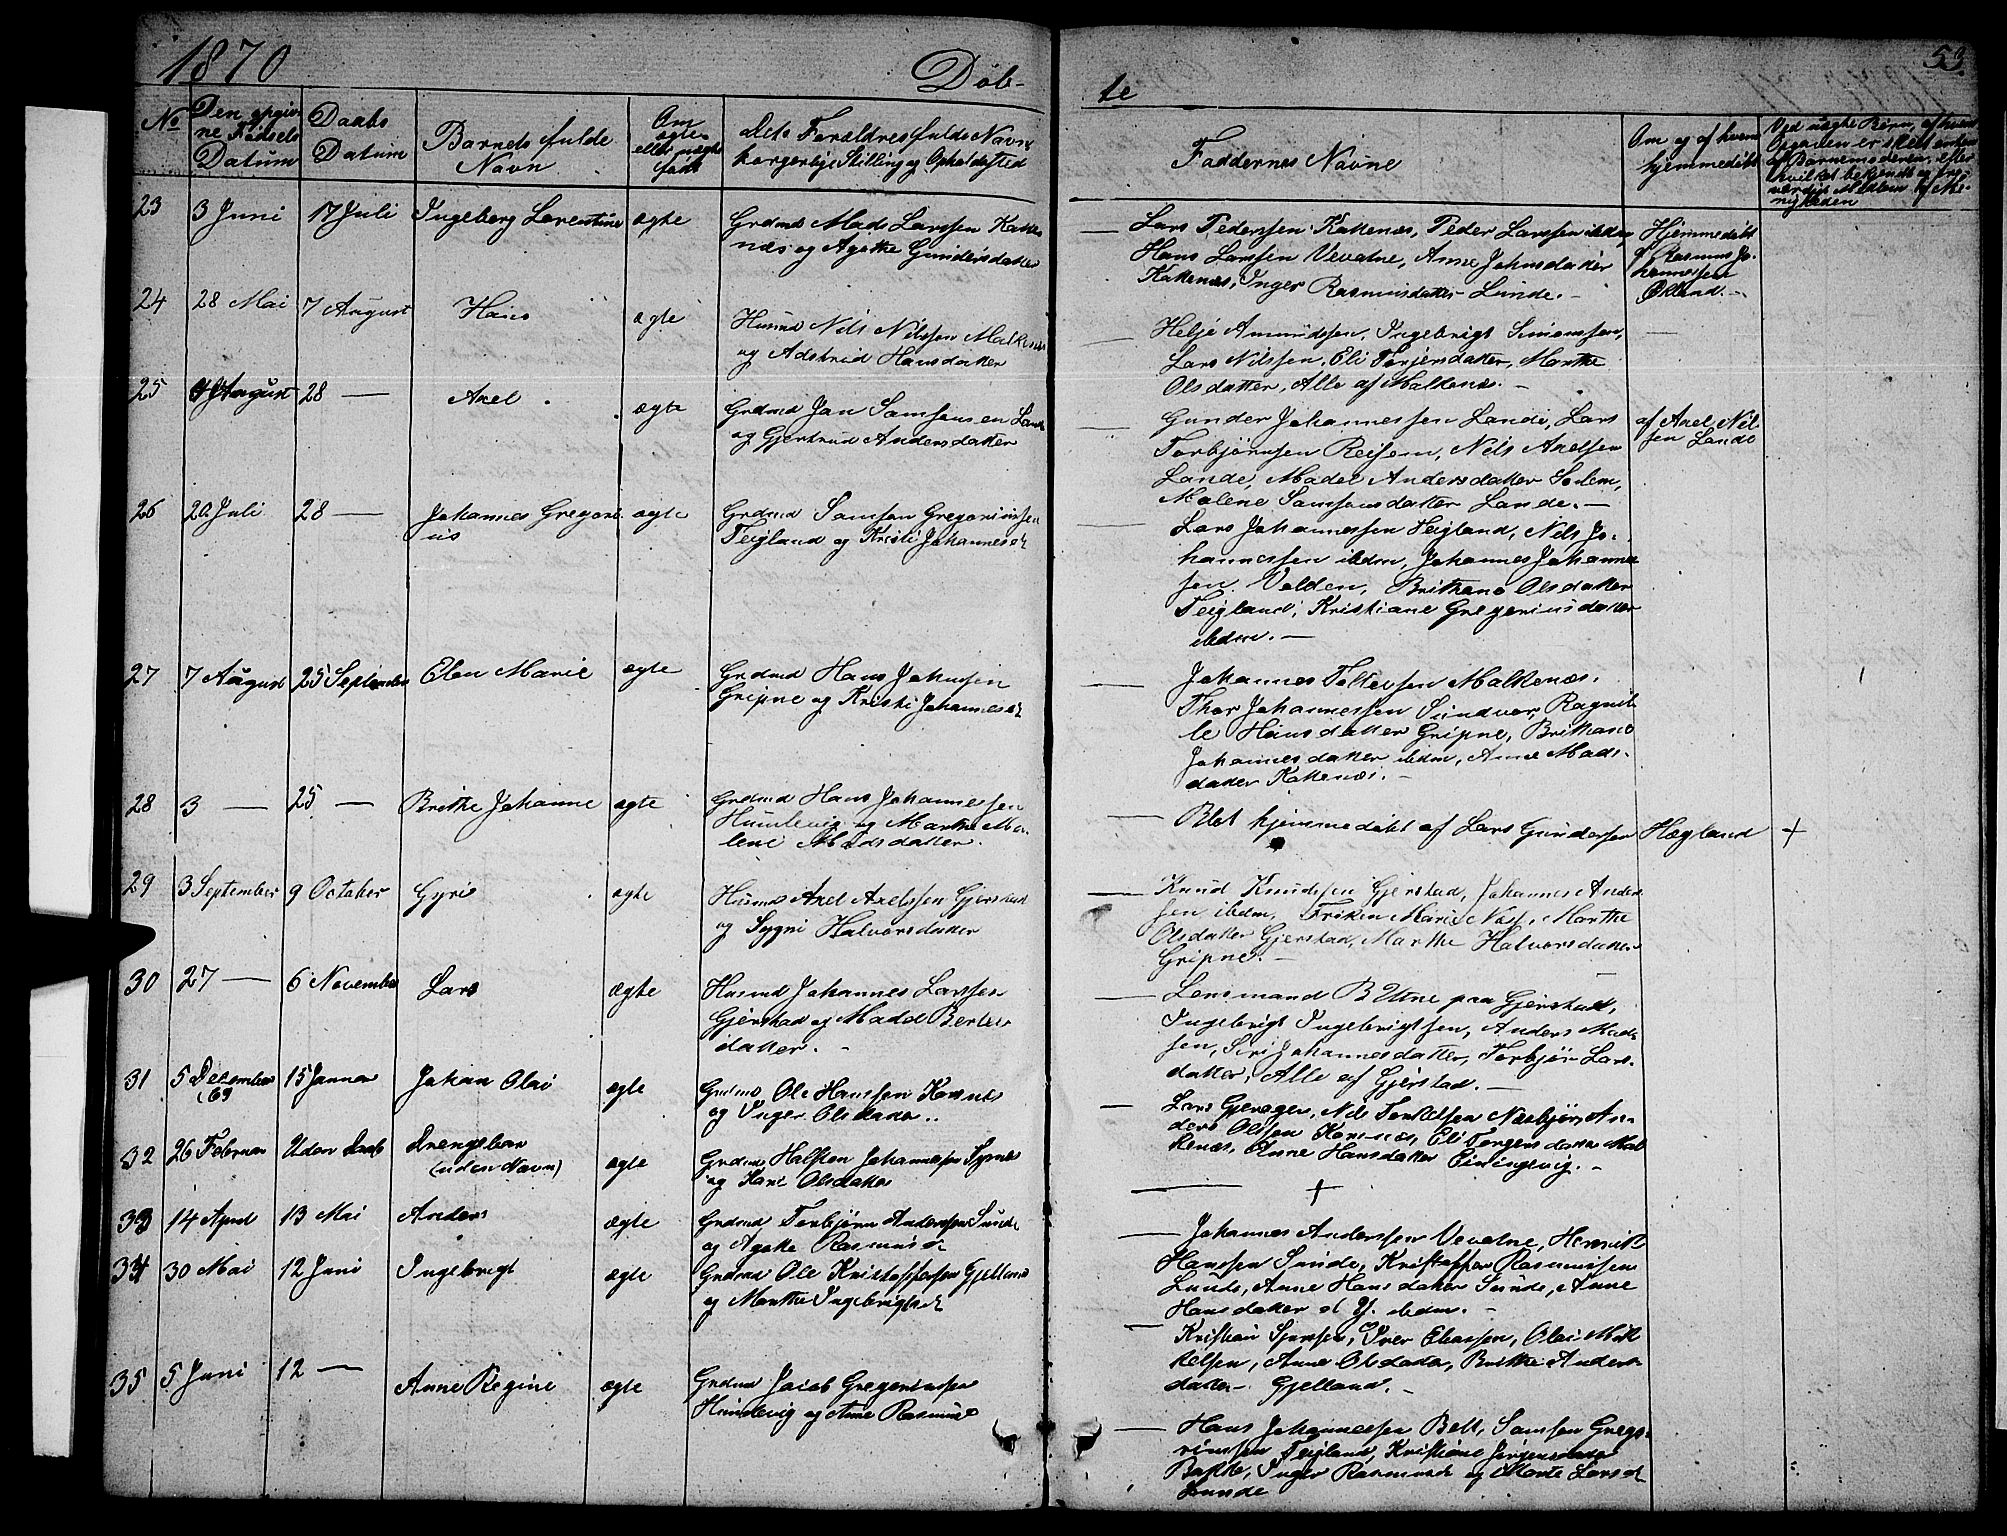 1870
Døb-
te
53.
No
Den opgiv-
ne Fødsels
Datum
Daabs
Datum
Barnets fulde
Navn
Om
ægte
eller uægte
født
Dets Forældres fulde Navne
borgerlige Stilling og Opholdsted
Faddernes Navne
Om og af hvem
hjemmedøbt
Ved uægte Børn, af hvem
Opgaven er skeet enten
af Barnemoderen, eller
hvilket bekjendt og tro-
værdigt Medlem af Me-
nigheden
23
3 Juni
17 Juli
Ingeborg Lorentine
ægte
Grdmd Mads Larssen Kalle
næs og Agathe Gundersdatter
Lars Pederssen Kallenæs, Peder Larssen ibdm,
Hans Larssen Vevatne, Anne Johnsdatter
Kallenæs, Inger Rasmusdatter Lunde. -
Hjemmedøbt
af Rasmus Jo-
hannessen
Økland. -
24
28 Mai
7 August
Hans
ægte
Husmd Nils Nilssen Malkenæs
og Adstrid Hansdatter
Helje Amundssen, Ingebrigt Simonssen,
Lars Nilssen, Eli Torgersdatter, Marthe
Olsdatter, Alle af Malkenæs. -
25
August
28 —
Axel
ægte
Grdmd Jan Samsonsen Lande
og Gjertrud Andersdatter
Gunder Johannessen Lande, Lars
Torbjørnsen Reisem, Nils Axelsen
Lande, Madel Andersdatter Solem,
Malene Samsonsdatter Lande. -
af Axel Nil-
sen Lande
26
20 Juli
28 —
Johannes Gregori-
us
ægte
Grdmd Samson Gregoriussen
Teigland og Kristi Johannesdt
Lars Johannessen Heigland, Nils Jo-
hannessen ibdm, Johannes Johannes
sen Valden, Brithane Olsdatter
Teigland, Kristiane Gregoriusdatter
ibdm. -
27
7 August
25 September
Elen Marie
ægte
Grdmd Hans Johnsen
Gripne og Kristi Johannesdt
Johannes Tollevsen Malkenæs,
Thor Johannessen Sundvor, Ragnil-
le Hansdatter Gripne, Brithane
Johannesdatter ibdm, Anne Mads-
datter Kallenæs. -
28
3 —
25 —
Brithe Johanne
ægte
Grdmd Hans Johannessen
Humlevig og Marthe Ma-
lene Madsdatter.
Blot hjemmedøbt af Lars Gundersen Hægland
+
29
3 September
9 October
Gyri
ægte
Husmd Axel Axelssen Gjerstad
og Sygni Halvorsdatter
Knud Knudssen Gjerstad, Johannes Ander
sen ibdm, Frøken Marie Næs, Marthe
Olsdatter Gjerstad, Marthe Halvorsdatter
Gripne. -
30
27 —
6 November
Lars
ægte
Husmd Johannes Larssen
Gjerstad og Madel Berter
datter. -
Lensmand B Utne paa Gjerstad,
Ingebrigt Ingebrigtsen, Anders Mad-
sen, Siri Johannesdatter, Torbjør Lars-
datter, Alle af Gjerstad. -
31
5 December
69
15 Januar
Johan Olai
ægte
Grdmd Ole Hanssen Kannes
og Inger Olsdatter.
Lars Gjerager, Nils Torkelsen Næsbjør, An-
ders Olssen Kannes, Eli Torgersdatter Mal
kenæs, Anne Hansdatter Einingevig. -
32
26 Februar
Uden Daab
Drengebarn
(uden Navn)
ægte
Grdmd Halsten Johannessen Synnes
og Kari Olsdatter
+
33
14 April
13 Mai
Anders
ægte
Grdmd Torbjørn Anderssen Sunde
og Agathe Rasmusdt
Johannes Anderssen Vevatne, Henrik
Hanssen Sunde, Kristoffer Rasmussen
Lunde, Anne Hansdatter Sunde, Anne
Hansdatter d. y. ibdm. -
34
30 Mai
12 Juni
Ingebrigt
ægte
Grdmd Ole Kristoffersen Gjelland
og Marthe Ingebrigtsdt
Kristian Simonsen, Iver Eliassen, Olai Mik
kelsen, Anne Olsdatter, Brithe Anders
datter Gjelland. -
35
5 Juni
12 —
Anne Regine
ægte
Grdmd Jacob Gregoriussen
Humlevig og Ane Rasmusdt
Hans Johannessen Belt, Samson Grego-
riussen Teigland, Kristiane Jørgensdatter
Bakke, Inger Rasmusdt og Marte Larsdt
Lunde